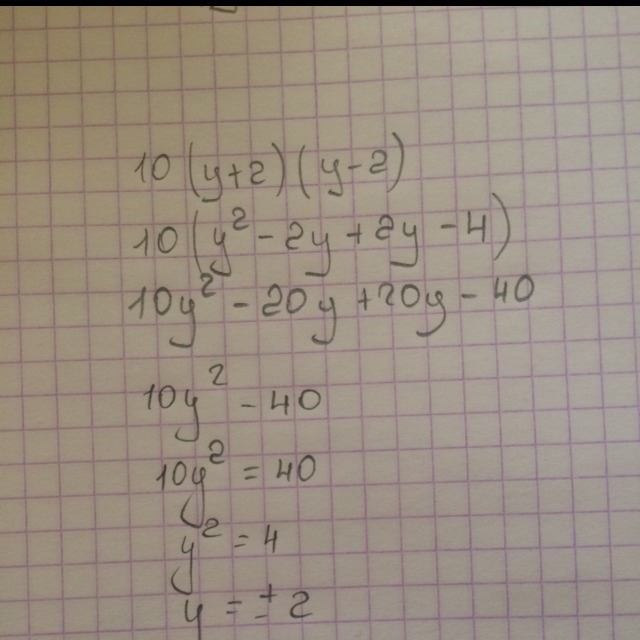 10(y+2)(y-2)
10(y²-2y+2y-4)
10y²-20y+20y-40
10y²-40
10y²=40
y²=4
y=±2